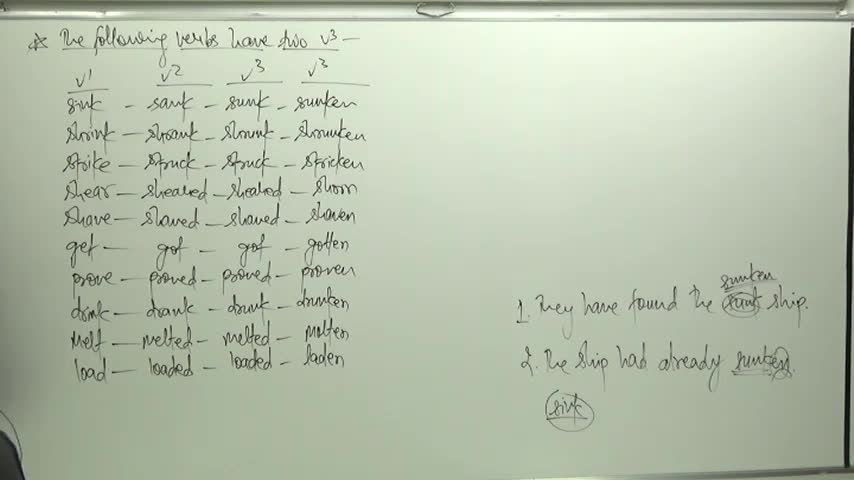 ☆ The following verbs have two v3 —
v1 v2 v3 v3
sink - sank - sunk - sunken
shrink - shrank - shrunk - shrunken
strike - struck - struck - stricken
shear - sheared - sheared - shorn
shave - shaved - shaved - shaven
get - got - got - gotten
prove - proved - proved - proven
drink - drank - drunk - drunken
melt - melted - melted - molten
load - loaded - loaded - laden
sunken
1. They have found the sunk ship.
2. The ship had already sunken.
sink